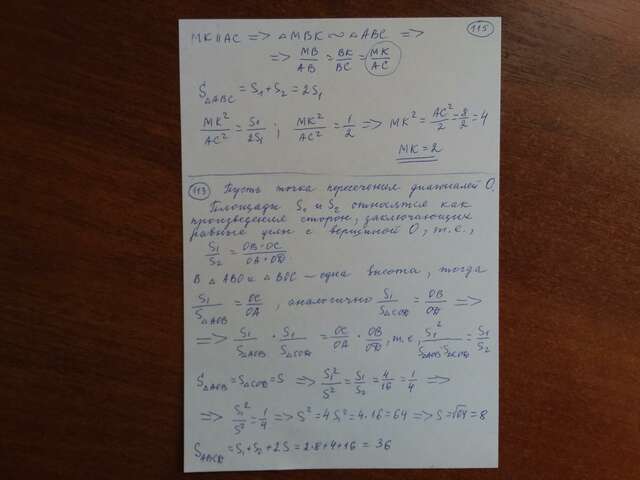 115
MK || AC => △MBK ∼ △ABC =>
=> MB/AB = BK/BC = MK/AC
S△ABC = S1 + S2 = 2S1
MK²/AC² = S1/2S1 ; MK²/AC² = 1/2 => MK² = AC²/2 = 8/2 = 4
MK = 2
113 Пусть точка пересечения диагоналей O.
Площади S1 и S2 относятся как
произведения сторон, заключающих
равные углы с вершиной O, т.е.,
S1/S2 = OB·OC/OA·OD.
В △ABO и △BOC — одна высота, тогда
S1/S△AOB = OC/OA, аналогично S1/S△COD = OB/OD =>
=> S1/S△AOB · S1/S△COD = OC/OA · OB/OD, т.е. S1²/S△AOB·S△COD = S1/S2
S△AOB = S△COD = S => S1²/S² = S1/S2 = 4/16 = 1/4 =>
=> S1²/S² = 1/4 => S² = 4S1² = 4·16 = 64 => S = √64 = 8
SABCD = S1 + S2 + 2S = 2·8 + 4 + 16 = 36